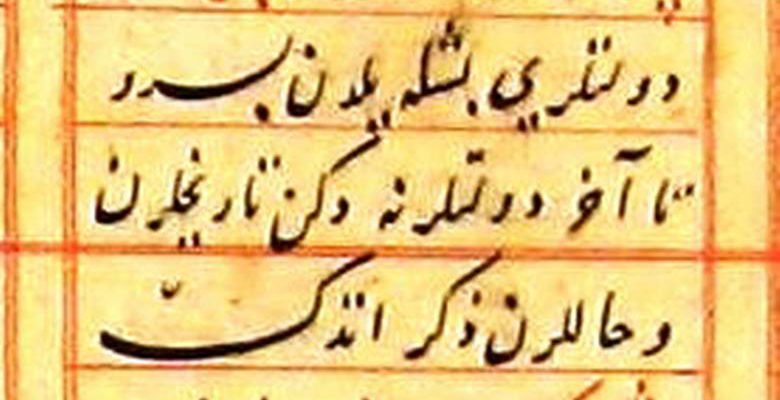 دولتلري بشله يلدن برو
تا آخر دولتلرنه دكن تاريخلرن
و حاللرن ذكر اتدك